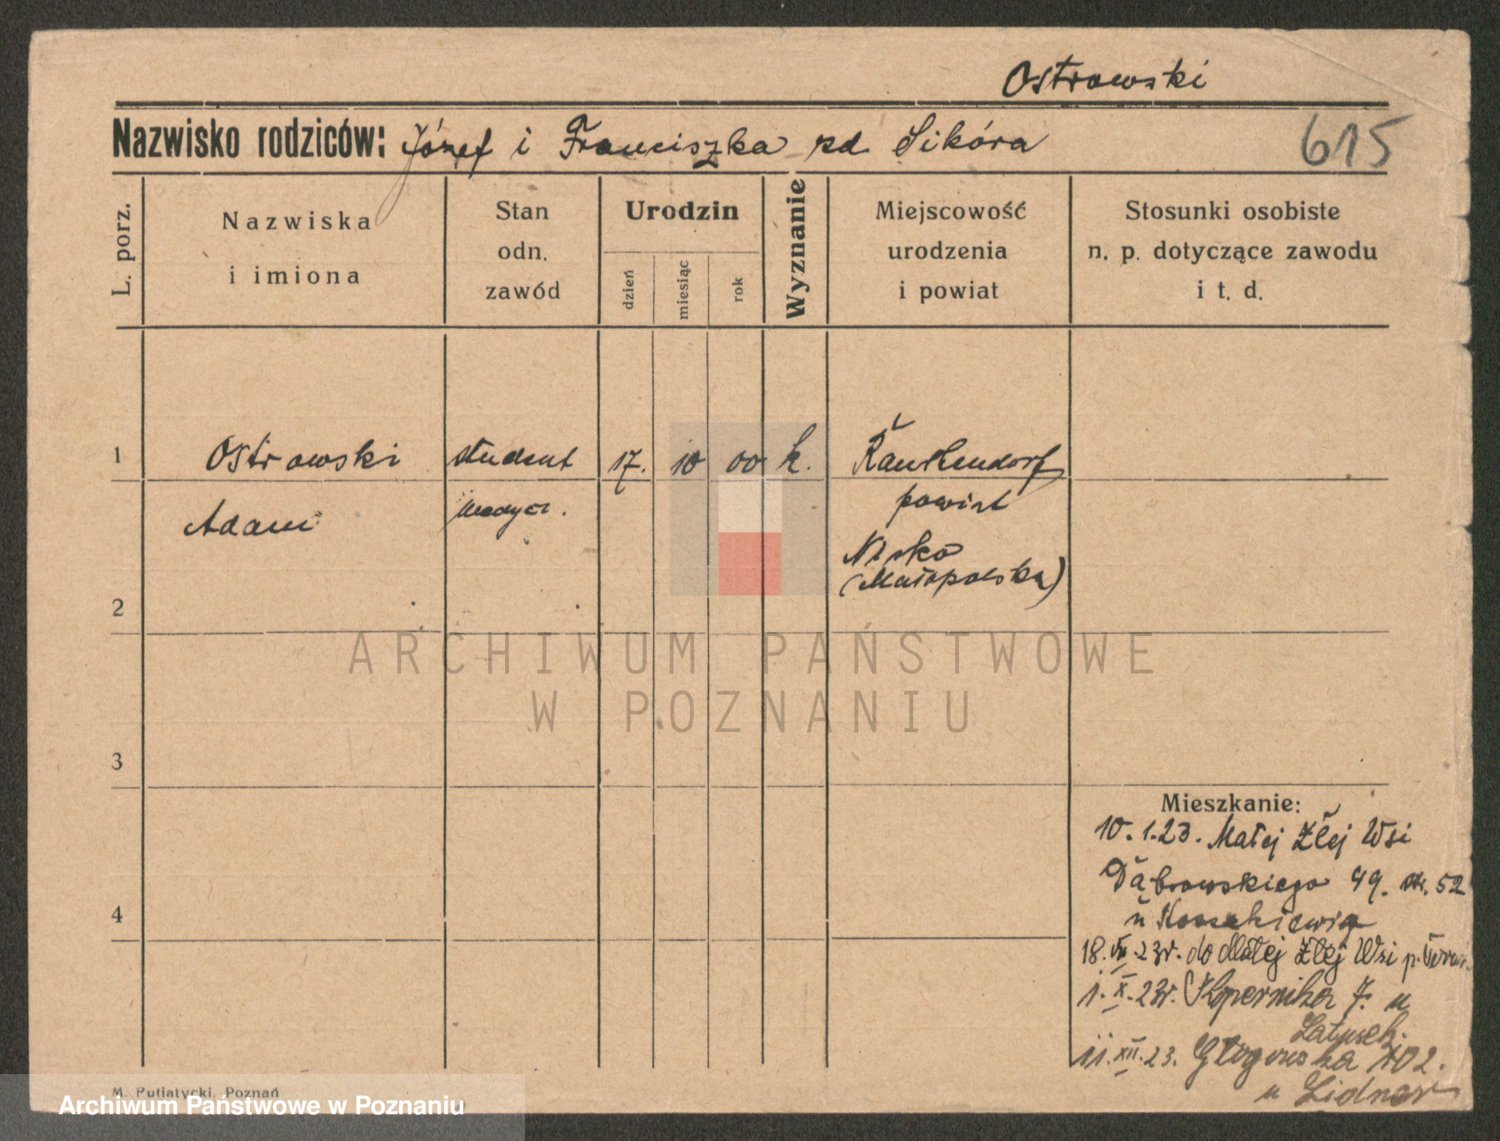 Ostrowski
Nazwisko rodziców: Józef i Franciszka zd Sikóra
615
L. porz.
Nazwiska
i imiona
Stan
odn.
zawód
Urodzin
dzień
miesiąc
rok
Wyznanie
Miejscowość
urodzenia
i powiat
Stosunki osobiste
n. p. dotyczące zawodu
i t. d.
1
Ostrowski
student
17.
10
00
k.
Adam
powiat
Nisko
(Małopolska)
2
ARCHIWUM PAŃSTWOWE
W POZNANIU
3
Mieszkanie:
10. 1.23. Małej Złej Wsi
Dąbrowskiego 49. 52
4
u
18. 23r. do Małej Złej Wsi p.
1. X. 23r. Kopernika 7. u
11. XII. 23. Głogowska 102.
u Lidner
M. Putiatycki, Poznań
Archiwum Państwowe w Poznaniu